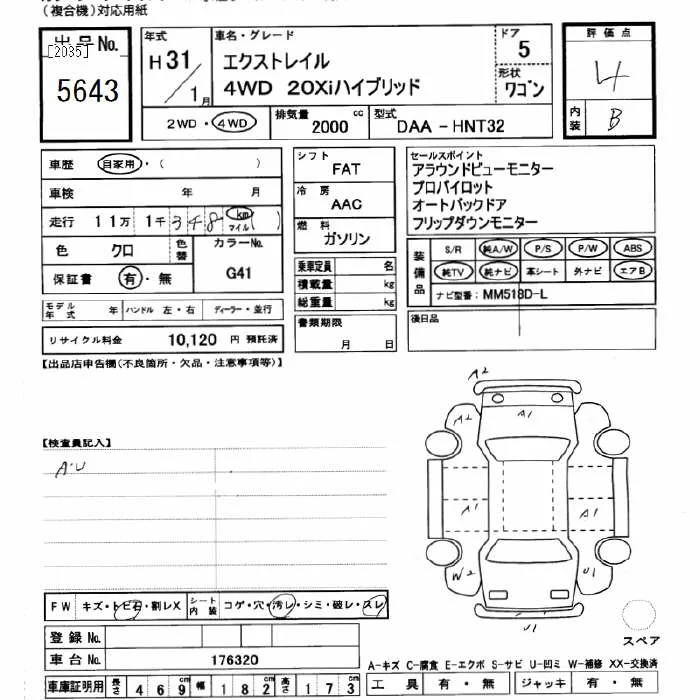 (複合機)対応用紙
出品No.
[2035]
5643
年式
H31/1月
車名・グレード
エクストレイル
4WD 20Xiハイブリッド
ドア
5
形状
ワゴン
評価点
4
内装
B
2WD・4WD
排気量
2000 cc
型式
DAA - HNT32
車歴 自家用・( )
車検 年 月
走行 11万 1千 348 km マイル ( )
色 クロ
色替
カラーNo.
G41
保証書 有・無
モデル年式 年
ハンドル 左・右
ディーラー・並行
リサイクル料金 10,120 円 預託済
シフト
FAT
冷房
AAC
燃料
ガソリン
乗車定員 名
積載量 kg
総重量 kg
書類期限
月 日
セールスポイント
アラウンドビューモニター
プロパイロット
オートバックドア
フリップダウンモニター
装備品
S/R 純A/W P/S P/W ABS
純TV 純ナビ 革シート 外ナビ エアB
ナビ型番: MM518D-L
後日品
【出品店申告欄(不良箇所・欠品・注意事項等)】
【検査員記入】
A・U
A2
A2
A1
A2
A1
A1
W2
U1
U1
スペア
FW キズ・トビ石・割レX
シート内装 コゲ・穴・汚レ・シミ・破レ・スレ
登録No.
車台No. 176320
車庫証明用 長さ 469cm 幅 182cm 高さ 173
A-キズ C-腐食 E-エクボ S-サビ U-凹ミ W-補修 XX-交換済
工具 有・無 ジャッキ 有・無